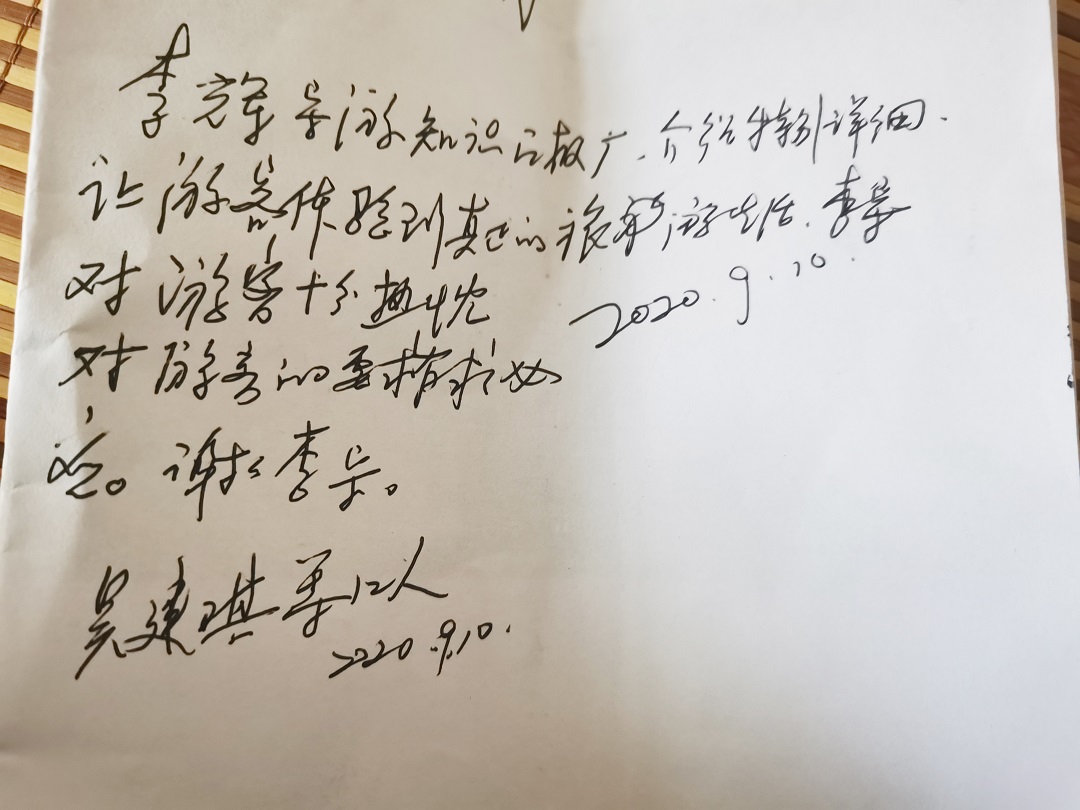 李 导游知识面极广.介绍特别详细.
让游客体验到真正的旅游生活.李导
对游客十分热忱
2020.9.10.
对游客的要求有求必
应。谢谢李导。
吴建琪等12人
2020.9.10.